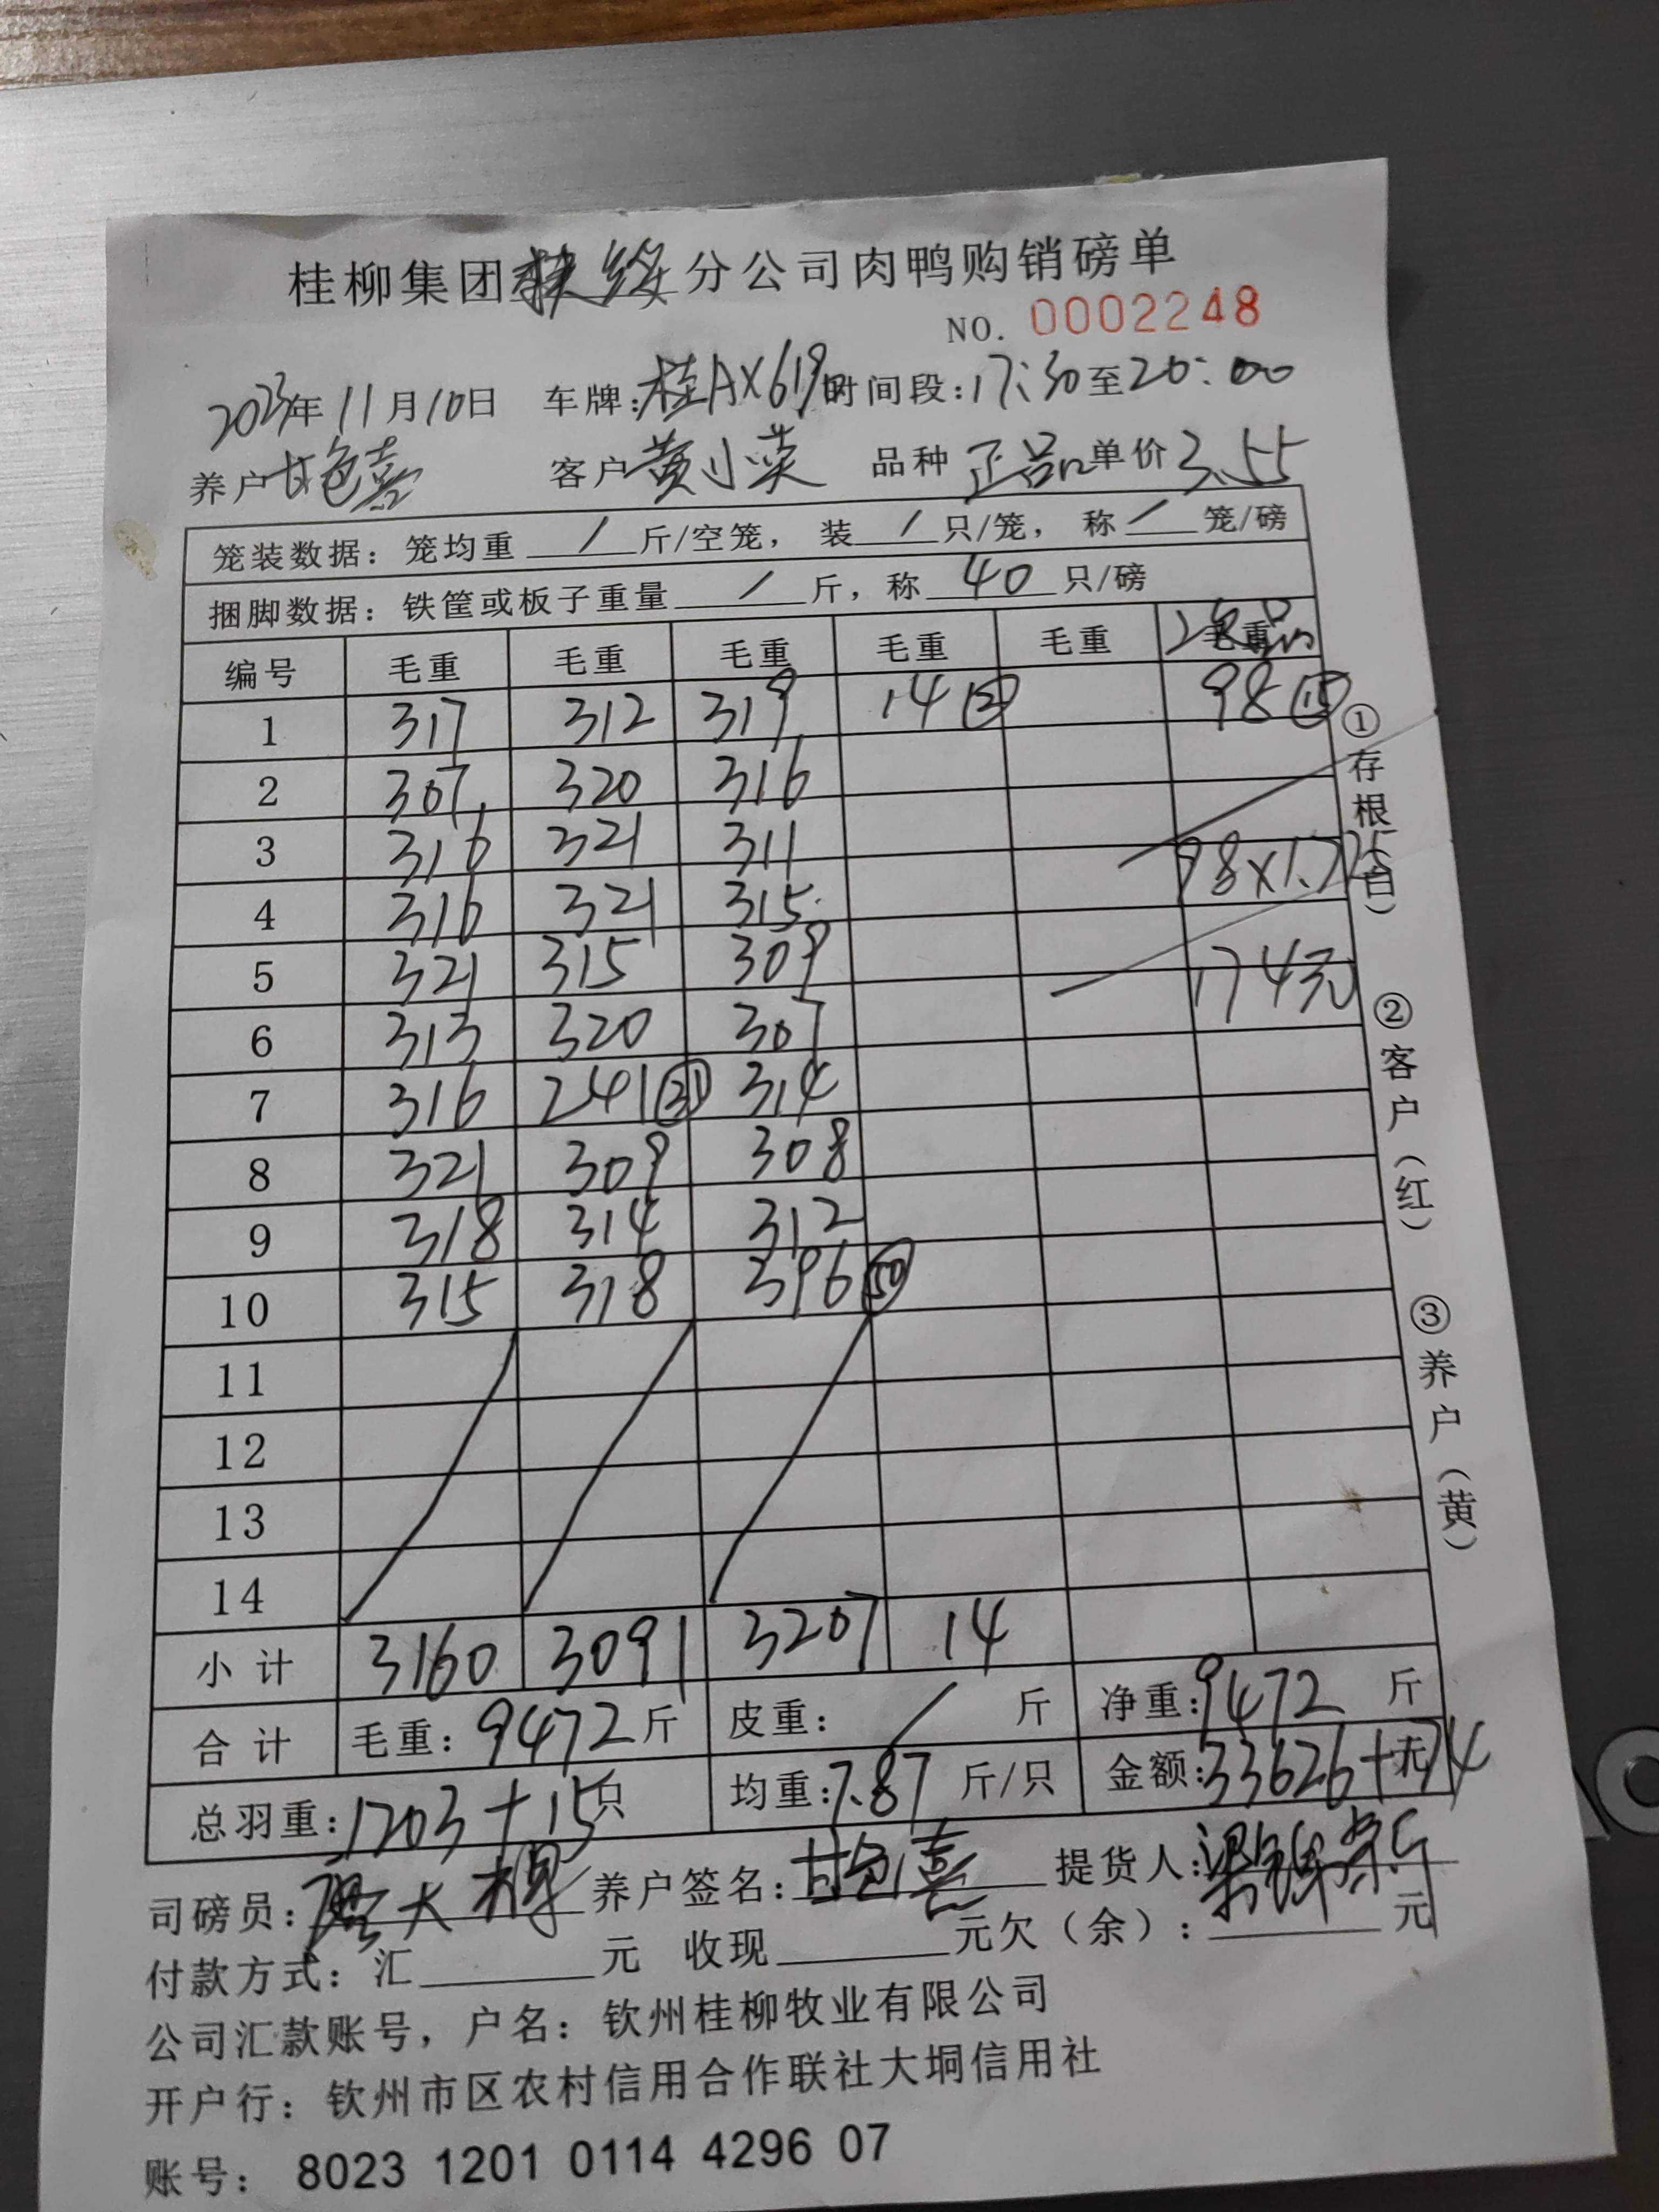 桂柳集团扶绥分公司肉鸭购销磅单
NO. 0002248
2023年11月10日 车牌:桂AX619 时间段:17:30至20:00
养户甘色喜 客户黄小英 品种 正品 单价3.55
笼装数据: 笼均重 / 斤/空笼, 装 / 只/笼, 称 / 笼/磅
捆脚数据: 铁筐或板子重量 / 斤, 称 40 只/磅
编号 毛重 毛重 毛重 毛重 毛重 毛重 次品
1 317 312 319 14② 98⑮
2 307 320 316
3 316 321 311 98×1.775
4 316 321 315
5 321 315 309 174元
6 313 320 307
7 316 241㉛ 314
8 321 309 308
9 318 314 312
10 315 318 396㊿
11
12
13
14
小计 3160 3091 3207 14
合计 毛重: 9472斤 皮重: / 斤 净重: 9472 斤
总羽重: 1203+15只 均重: 7.87 斤/只 金额: 33626+174元
司磅员: 养户签名: 甘色喜 提货人: 梁锦
付款方式: 汇 元 收现 元欠(余): 元
公司汇款账号, 户名: 钦州桂柳牧业有限公司
开户行: 钦州市区农村信用合作联社大垌信用社
账号: 8023 1201 0114 4296 07
①存根(白) ②客户(红) ③养户(黄)